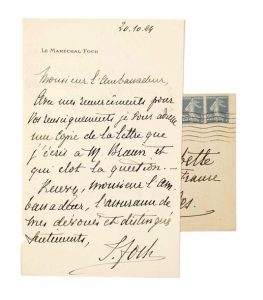 20.10.24
LE MARÉCHAL FOCH
Monsieur l'Ambassadeur,
Avec mes remerciements pour
vos renseignements je vous adresse
une copie de la lettre que
j'écris à M. Braun et
qui clot la question. —
Veuillez, monsieur l'Am-
bassadeur, l'assurance de
mes dévoués et distingués
sentiments,
F. Foch